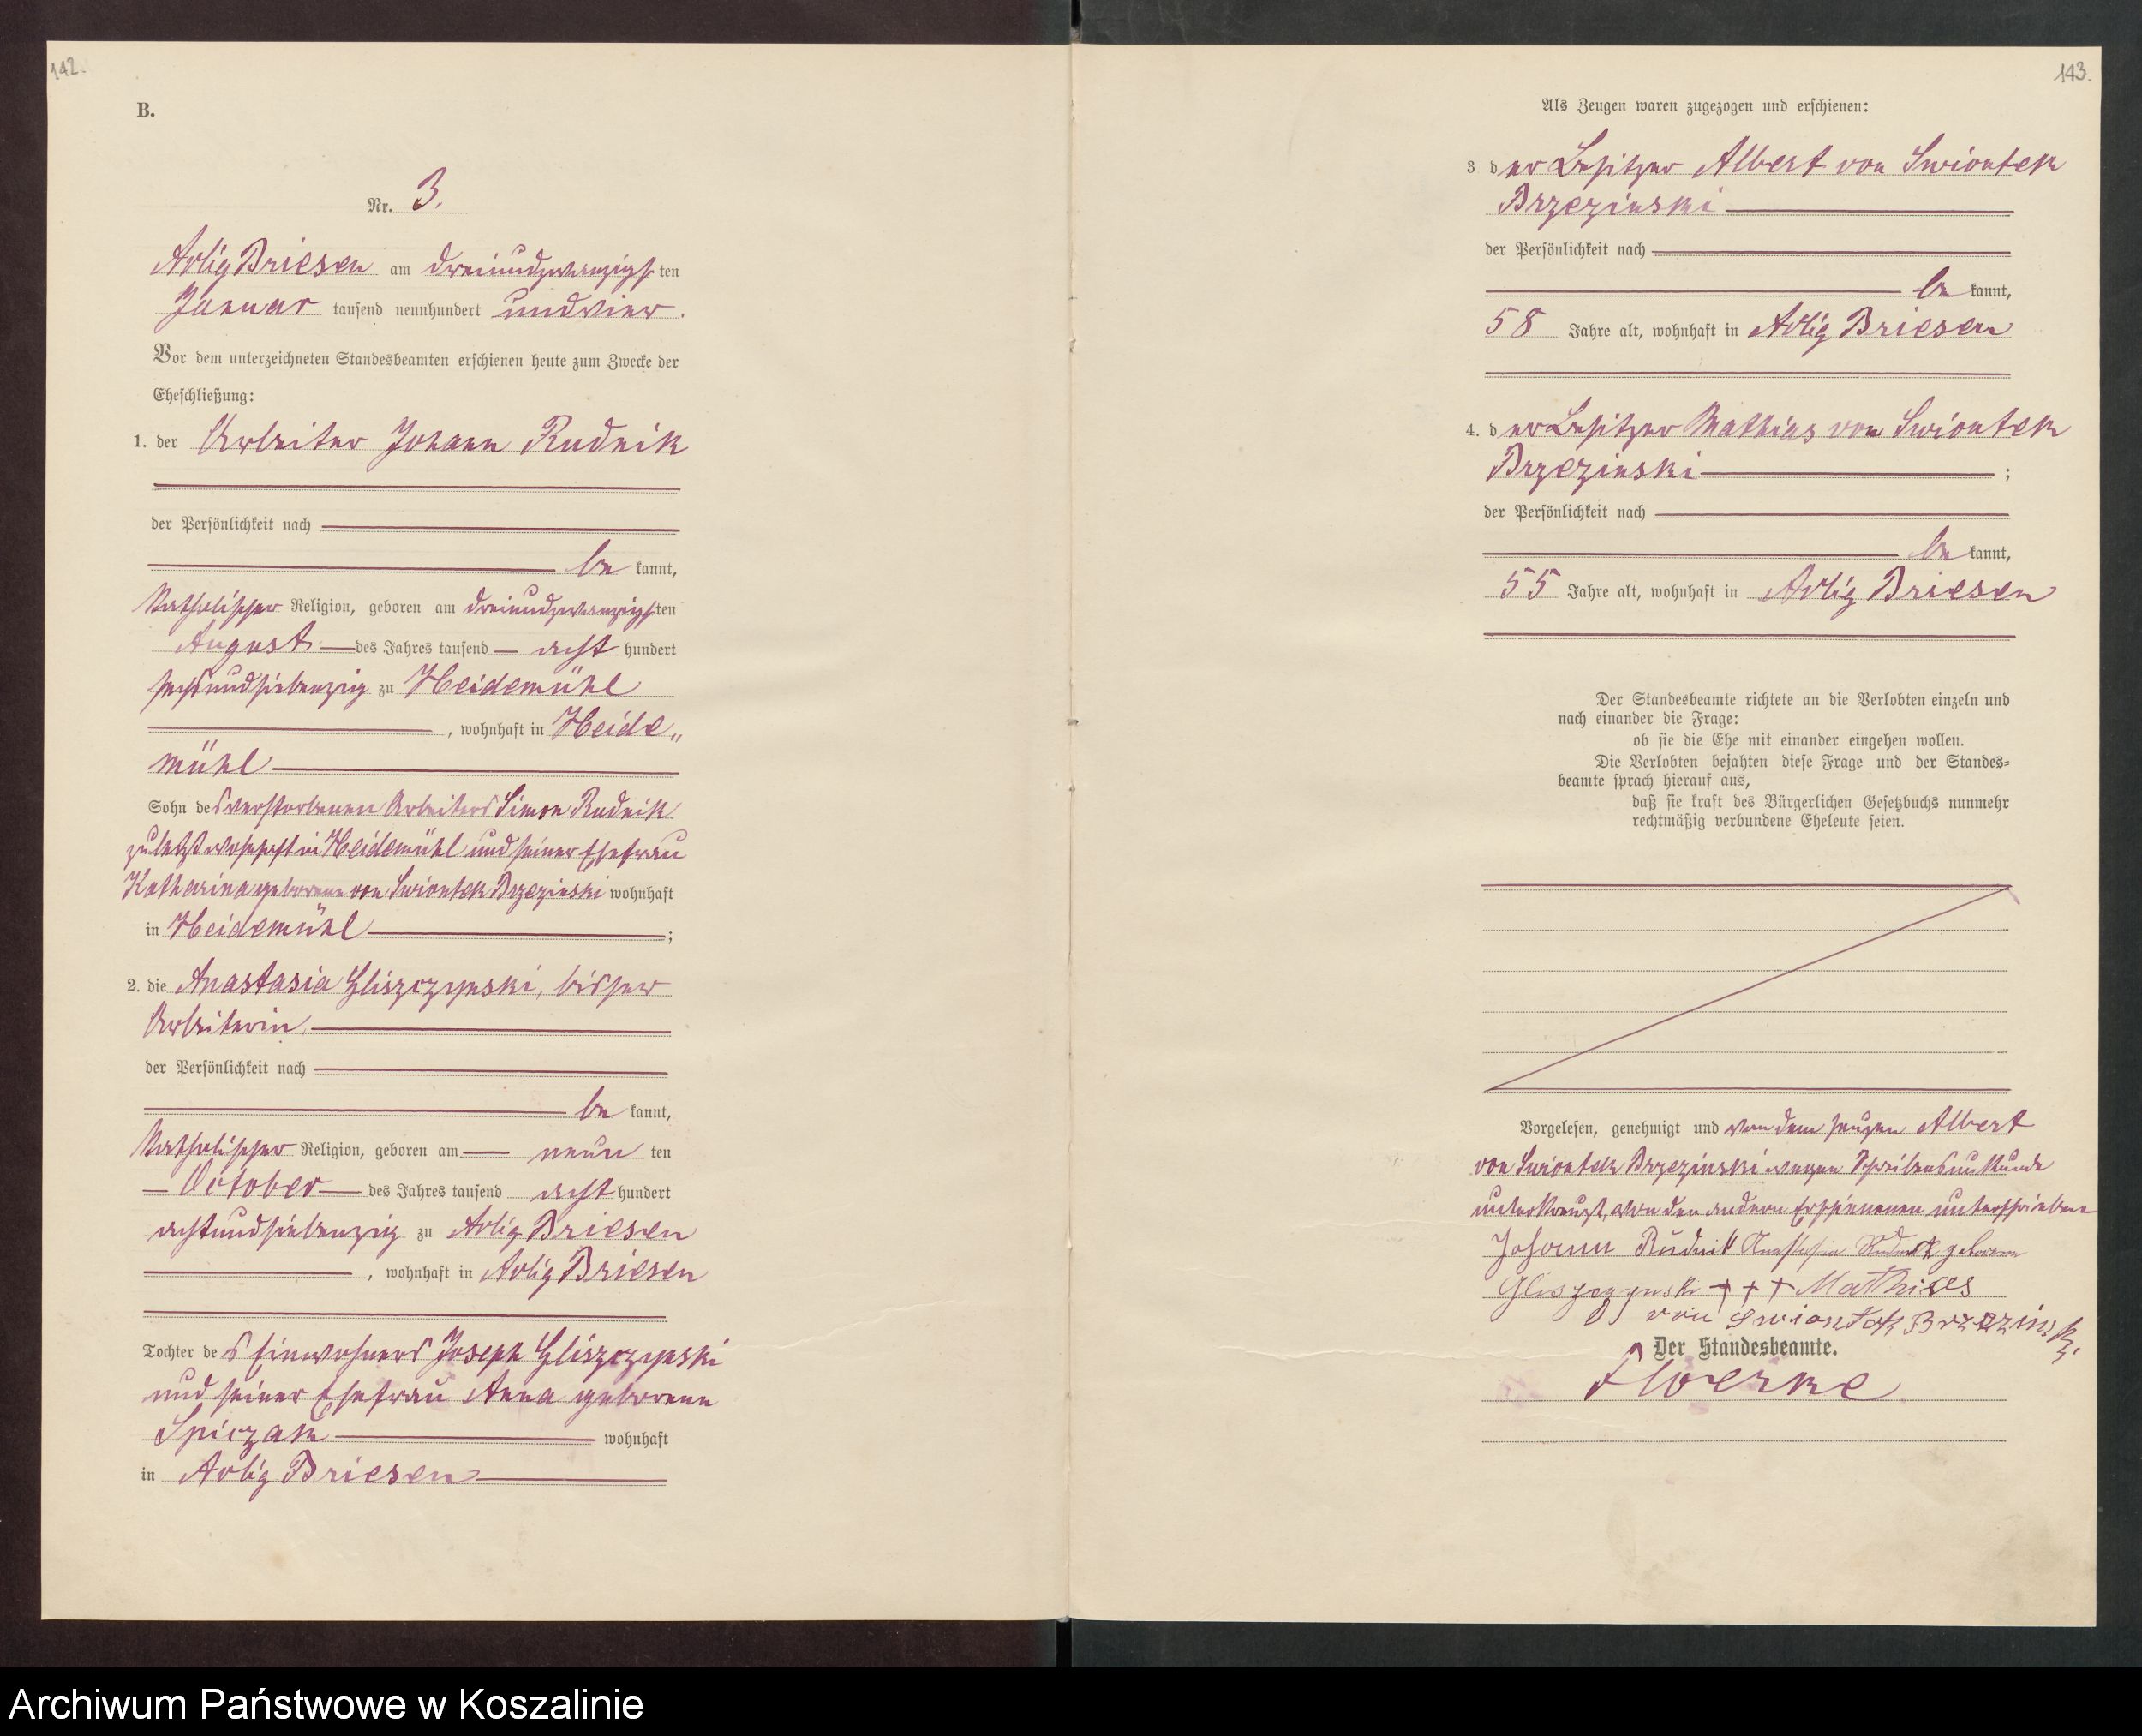 142.
B.
Nr. 3.
Adlig Briesen am dreiundzwanzigsten
Januar tausend neunhundert undvier.
Vor dem unterzeichneten Standesbeamten erschienen heute zum Zwecke der
Eheschließung:
1. der Arbeiter Johann Rudnik
der Persönlichkeit nach
be kannt,
katholischer Religion, geboren am dreiundzwanzigsten
August des Jahres tausend acht hundert
sechsundsiebenzig zu Heidemühl
, wohnhaft in Heide„
mühl
Sohn des verstorbenen Arbeiters Simon Rudnik
zuletzt wohnhaft in Heidemühl und seiner Ehefrau
Katharina geborene von Swiontek Brzezinski wohnhaft
in Heidemühl ;
2. die Anastasia Gliszczynski, bisher
Arbeiterin,
der Persönlichkeit nach
be kannt,
katholischer Religion, geboren am neun ten
October des Jahres tausend acht hundert
achtundsiebenzig zu Adlig Briesen
, wohnhaft in Adlig Briesen
Tochter des Einwohners Joseph Gliszczynski
und seiner Ehefrau Anna geborene
Spiczak wohnhaft
in Adlig Briesen
143.
Als Zeugen waren zugezogen und erschienen:
3 der Besitzer Albert von Swiontek
Brzezinski
der Persönlichkeit nach
be kannt,
58 Jahre alt, wohnhaft in Adlig Briesen
4. der Besitzer Mathias von Swiontek
Brzezinski ;
der Persönlichkeit nach
be kannt,
55 Jahre alt, wohnhaft in Adlig Briesen
Der Standesbeamte richtete an die Verlobten einzeln und
nach einander die Frage:
ob sie die Ehe mit einander eingehen wollen.
Die Verlobten bejahten diese Frage und der Standes=
beamte sprach hierauf aus,
daß sie kraft des Bürgerlichen Gesetzbuchs nunmehr
rechtmäßig verbundene Eheleute seien.
Vorgelesen, genehmigt und von dem Zeugen Albert
von Swiontek Brzezinski wegen Schreibensunkunde
unterkreuzt, von den andern Erschienenen unterschrieben
Johann Rudnik Anastasia Rudnik geborene
Gliszczynski +++ Mathises
von Swiontek Brzezinski
Der Standesbeamte.
Archiwum Państwowe w Koszalinie